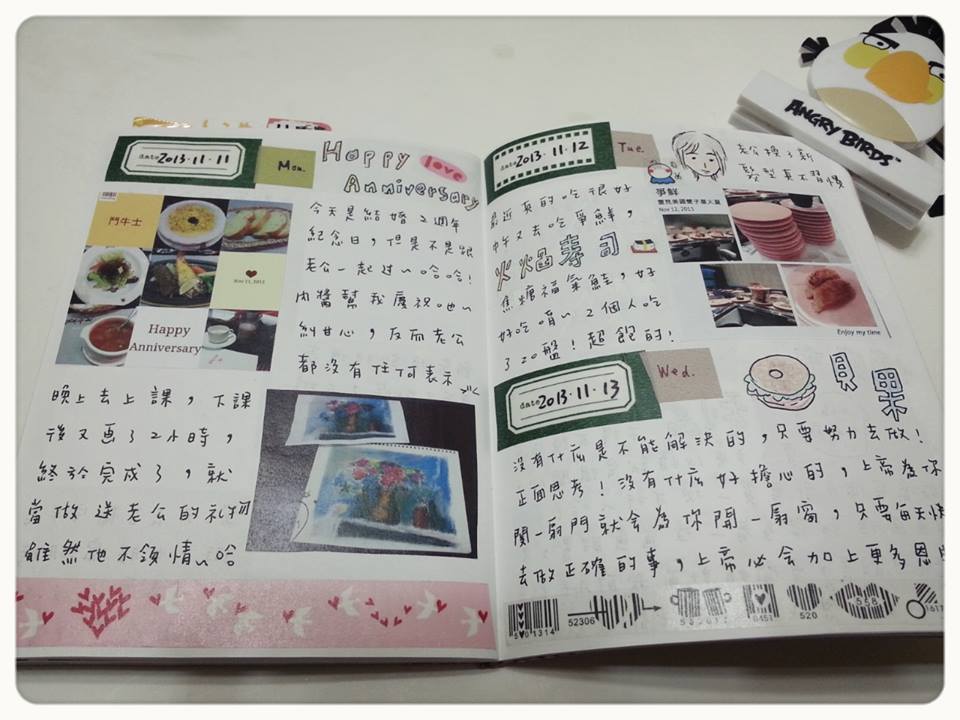 date 2013.11.11
Mon.
Happy love
Anniversary
鬥牛士
Nov 11, 2013
Happy
Anniversary
今天是結婚2週年
紀念日，但是不是跟
老公一起过～哈哈！
肉醬幫我慶祝吔～
糾甘心，反而老公
都沒有任何表示
晚上去上課，下課
後又画了2小時，
終於完成了，就
當做送老公的礼物
雖然他不領情～哈
date 2013.11.12
Tue.
老公換了新
髮型真不習慣
最近真的吃很好
中午又去吃爭鮮，
火焰寿司
焦糖福氣鮭，好
好吃唷～2個人吃
了20盤！超飽的！
爭鮮
Nov 12, 2013
Enjoy my time
date 2013.11.13
Wed.
貝果
沒有什広是不能解決的，只要努力去做！
正面思考！沒有什広好擔心的，上帝為你
関一扇門就会為你開一扇窗，只要每天快
去做正確的事，上帝必会加上更多恩
5 01314
52306
0451
520
558
1617
ANGRY BIRDS